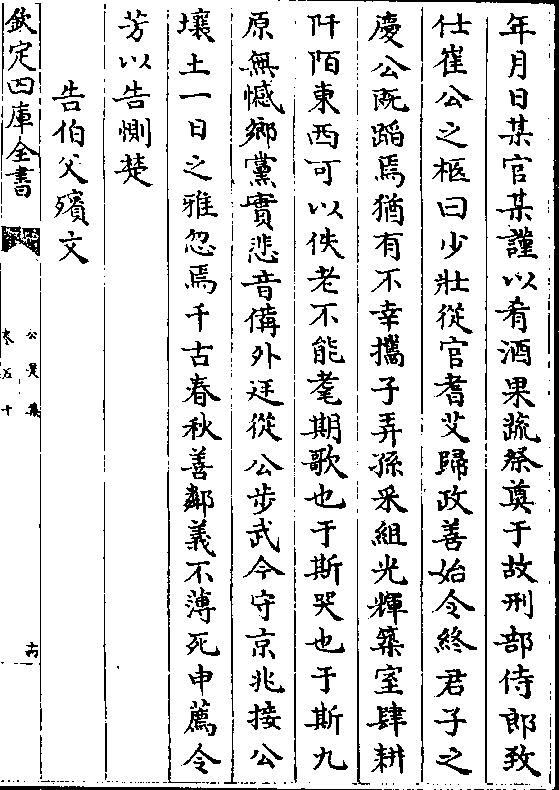 年月日某官某謹以肴酒果蔬祭奠于故刑部侍郎致
仕崔公之柩曰少壯從官耆艾歸政善始令終君子之
慶公既蹈焉猶有不幸攜子弄孫采組光輝築室肆耕
阡陌東西可以佚老不能耄期歌也于斯哭也于斯九
原無憾鄉黨實悲昔備外廷從公步武今守京兆接公
壤土一日之雅忽焉千古春秋善鄰義不薄死申薦令
芳以告惻楚
告伯父殯文
欽定四庫全書
公是集
卷五十